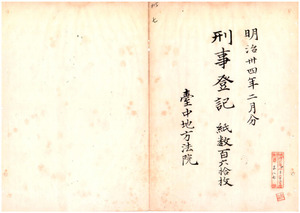 明治卅四年二月分
刑事登記 紙数百六拾枚
臺中地方法院